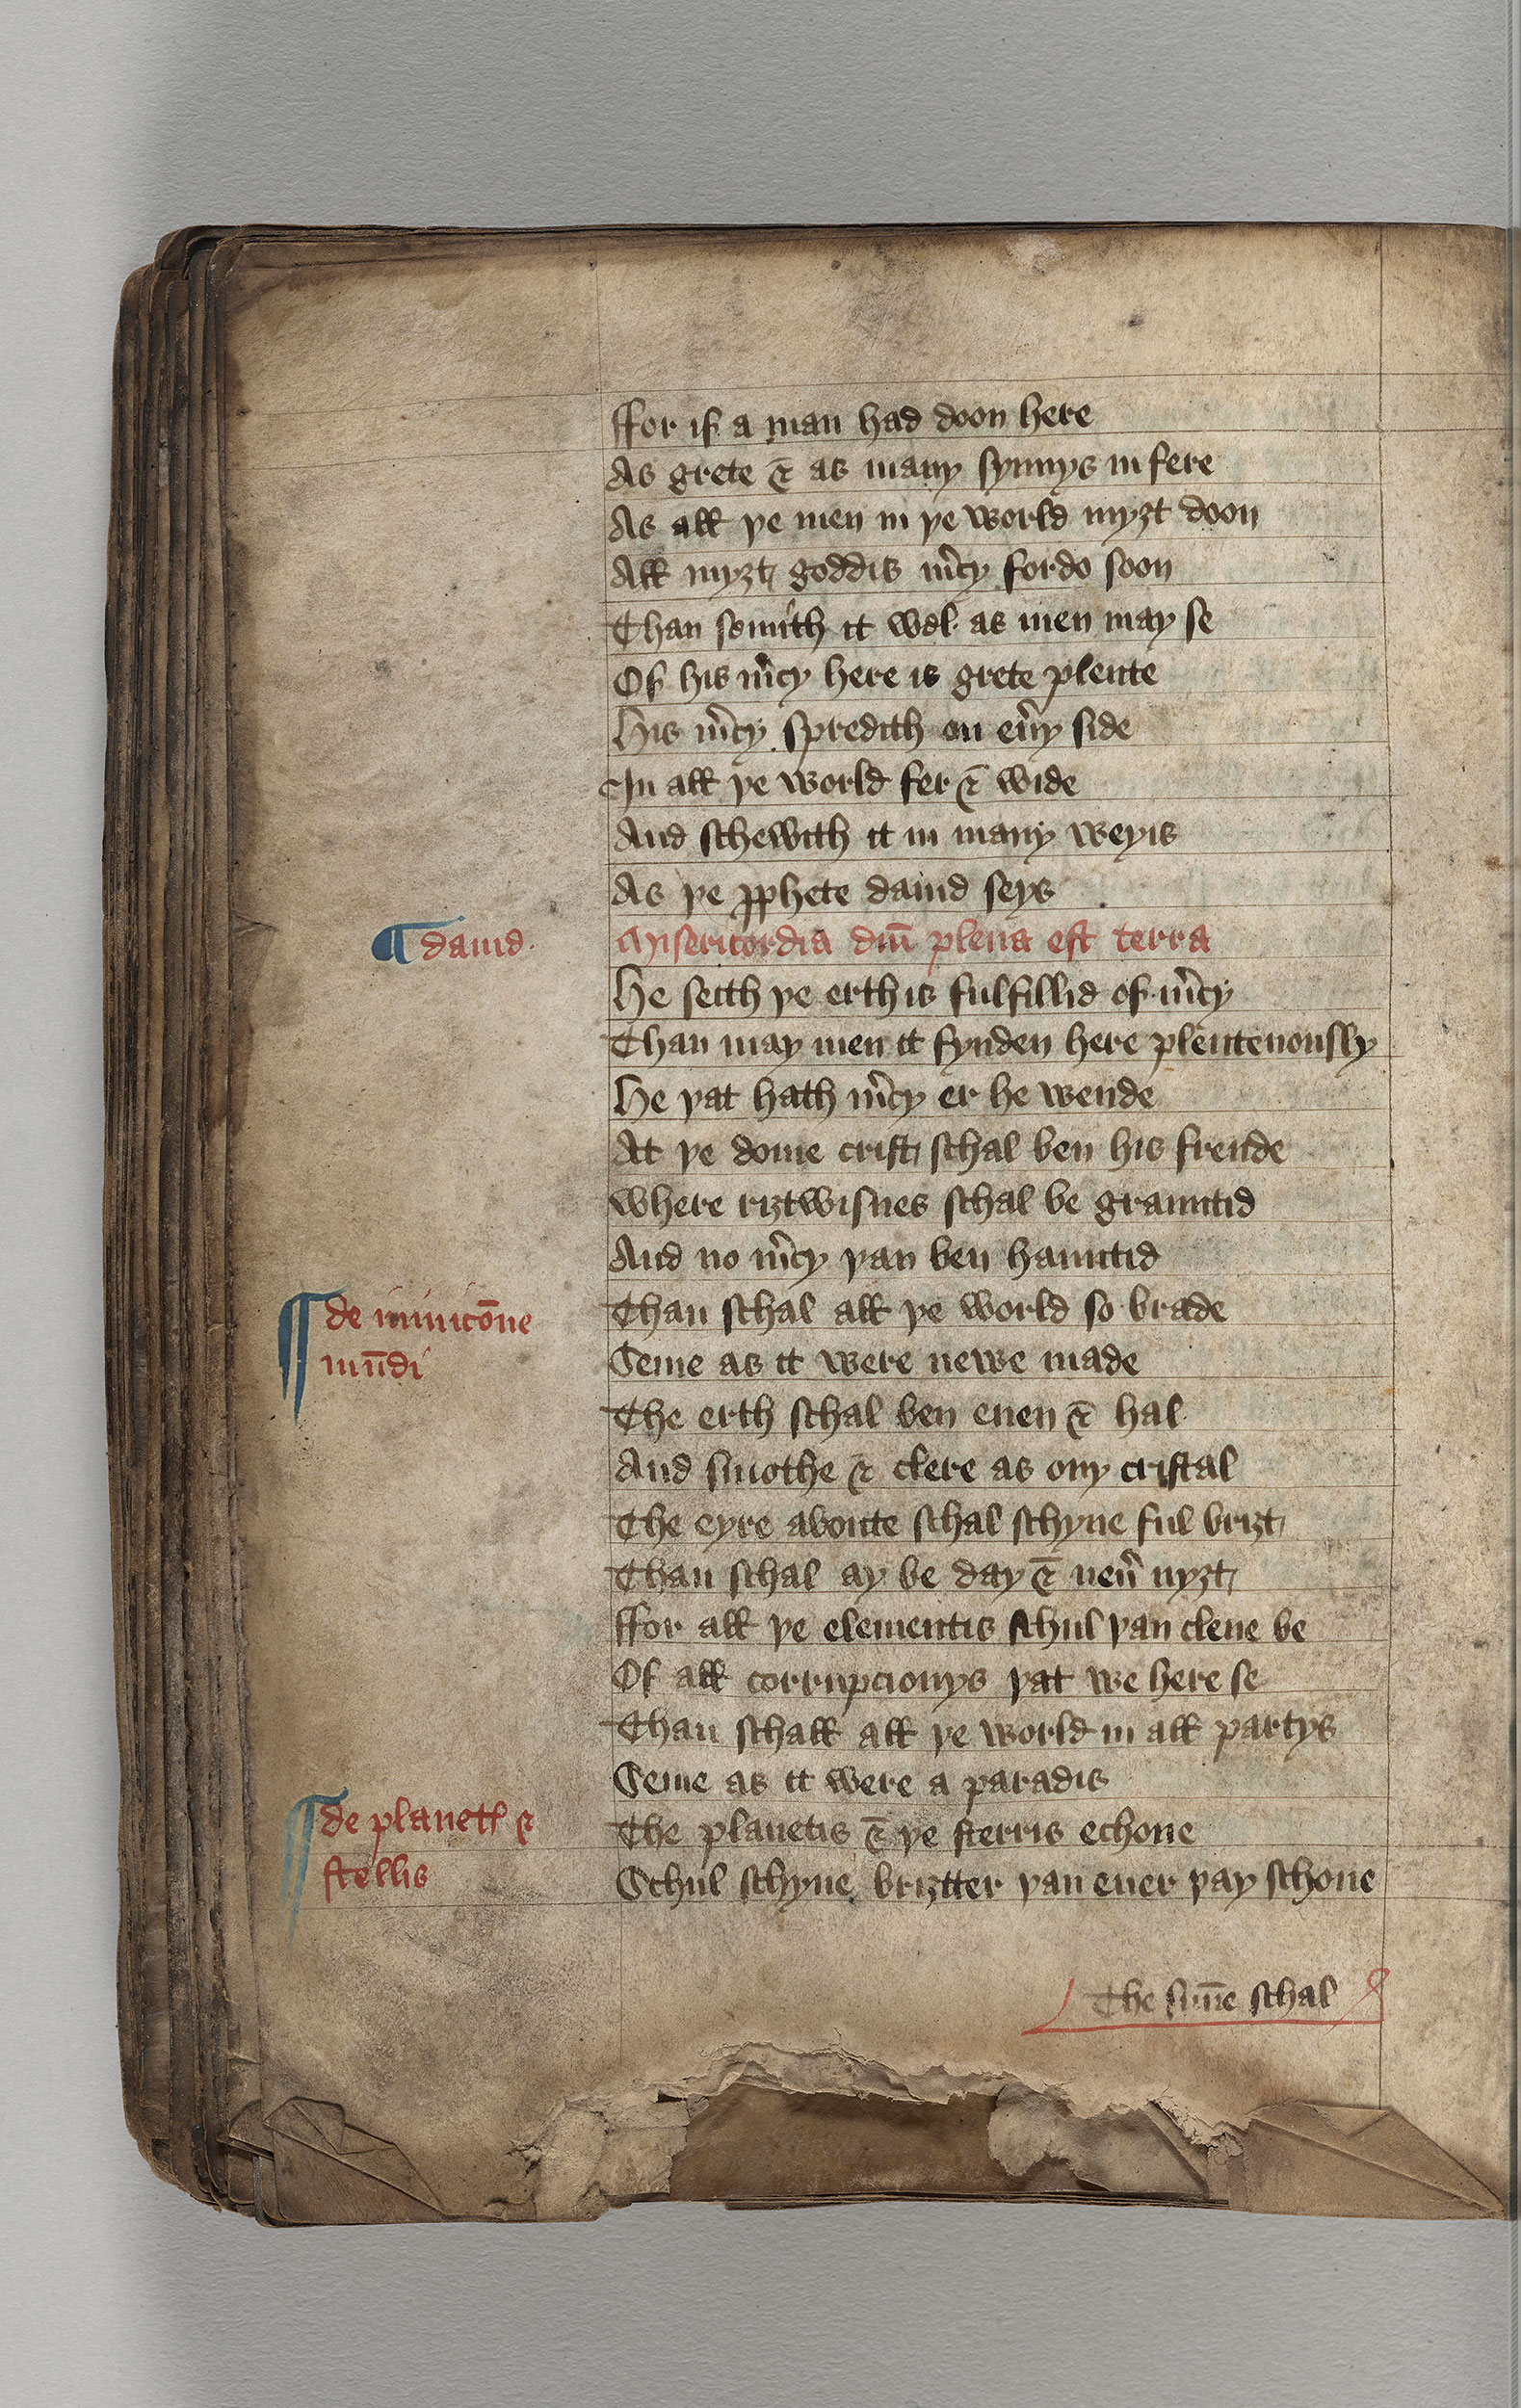 ffor if a man had doon here
As grete & as many synnys in fere
As all ye men in ye world myȝt doon
All myȝt goddis m̉cy fordo soon
Than semith it wel as men may se
Of his m̉cy here is grete plente
His m̉cy spredith on eủy side
In all ye world fer & wide
And schewith it in many weyis
As ye ꝓphete dauid seys
¶ dauid
Misericordia dn̄i plena est terra
He seith ye erth is fulfillid of m̉cy
Than may men it fynden here plenteuously
He yat hath m̉cy er he wende
At ye dome crist schal ben his frende
where riȝtwisnes schal be grauntid
And no m̉cy yan ben hauntid
¶ de
mūdi
Than schal all ye world so brade
Seme as it were newe made
The erth schal ben euen & hal
And smothe & clere as ony cristal
The eyre aboute schal schyne ful briȝt
Than schal ay be day & neủ nyȝt
ffor all ye elementis schul yan clene be
Of all corrupcionys yat we here se
Than schall all ye world in all partys
Seme as it were a paradis
¶ de planet &
stellis
The planetis & ye sterris echone
Schul schyne briȝtter yan euer yay schone
The sūne schal